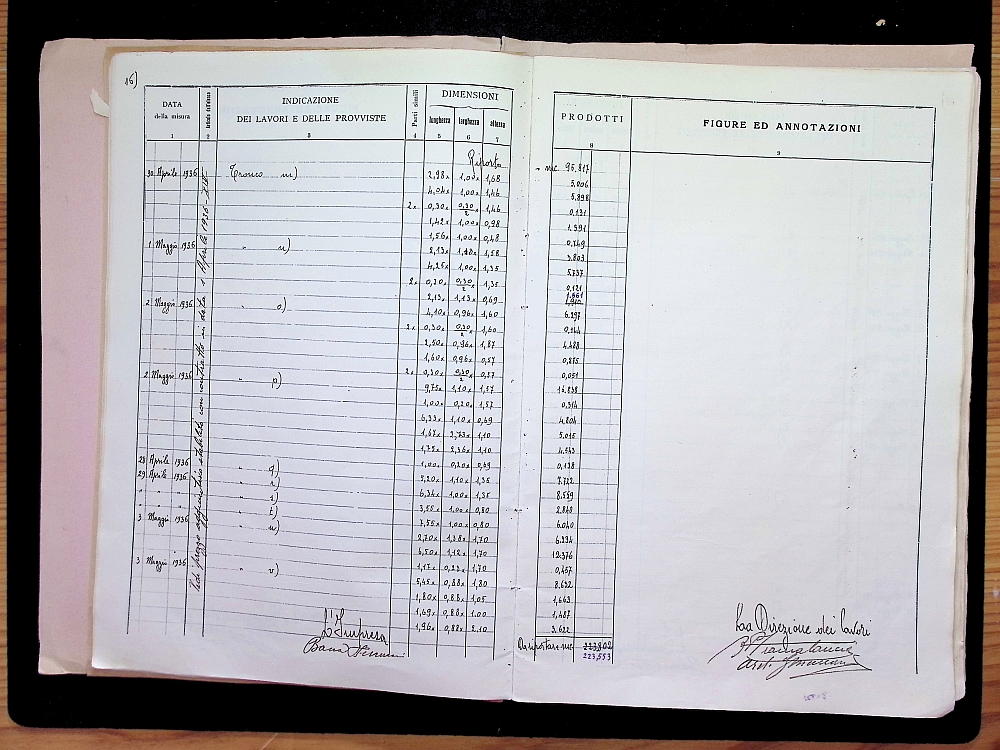 16)
DATA
della misura
INDICAZIONE
DEI LAVORI E DELLE PROVVISTE
Parti simili
DIMENSIONI
lunghezza larghezza altezza
PRODOTTI
FIGURE ED ANNOTAZIONI
1 2 3 4 5 6 7 8 9
Vedi prezzo appuntato stabilito con contratto in data 1 Aprile 1936 - XIV
Riporto mc. 95.817
30 Aprile 1936 Tronco m) 2,98x 1,00x 1,68 5.006
4,04x 1,00x 1,46 5.898
2x 0,30x 0,30/2x 1,46 0.131
1,42x 1,00x 0,98 1.391
1,56x 1,00x 0,48 0.749
1 Maggio 1936 " n) 2,13x 1,58 3.803
4,25x 1,00x 1,35 5.737
2x 0,20x 0,30/2x 1,35 0.121
2,13x 1,13x 0,69 1.661
2 Maggio 1936 " o) 4,10x 0,96x 1,60 6.297
2x 0,30x 0,30/2x 1,60 0.144
2,50x 0,96x 1,87 4.488
1,60x 0,96x 0,57 0.875
2x 0,30x 0,30/2x 0,57 0.051
2 Maggio 1936 " p) 9,75x 1,10x 1,57 16.838
1,00x 0,20x 1,57 0.314
6,33x 1,10x 0,69 4.804
1,67x 2,73x 1,10 5.015
1,75x 2,36x 1,10 4.543
28 Aprile 1936 " q) 1,00x 0,20x 0,69 0.138
29 Aprile 1936 " r) 5,20x 1,10x 1,35 7.722
" " " " s) 6,34x 1,00x 1,35 8.559
" " " " t) 3,55x 1,00x 0,80 2.840
3 Maggio 1936 " u) 7,55x 1,00x 0,80 6.040
2,70x 1,38x 1,70 6.334
6,50x 1,12x 1,70 12.376
3 Maggio 1936 " v) 1,17x 0,23x 1,70 0.457
5,45x 0,88x 1,80 8.632
1,80x 0,88x 1,05 1.663
1,69x 0,88x 1.00 1.487
1,96x 0,88x 2,10 3.622
Da riportare mc. 223,802
223,553
L'Impresa
La Direzione dei lavori